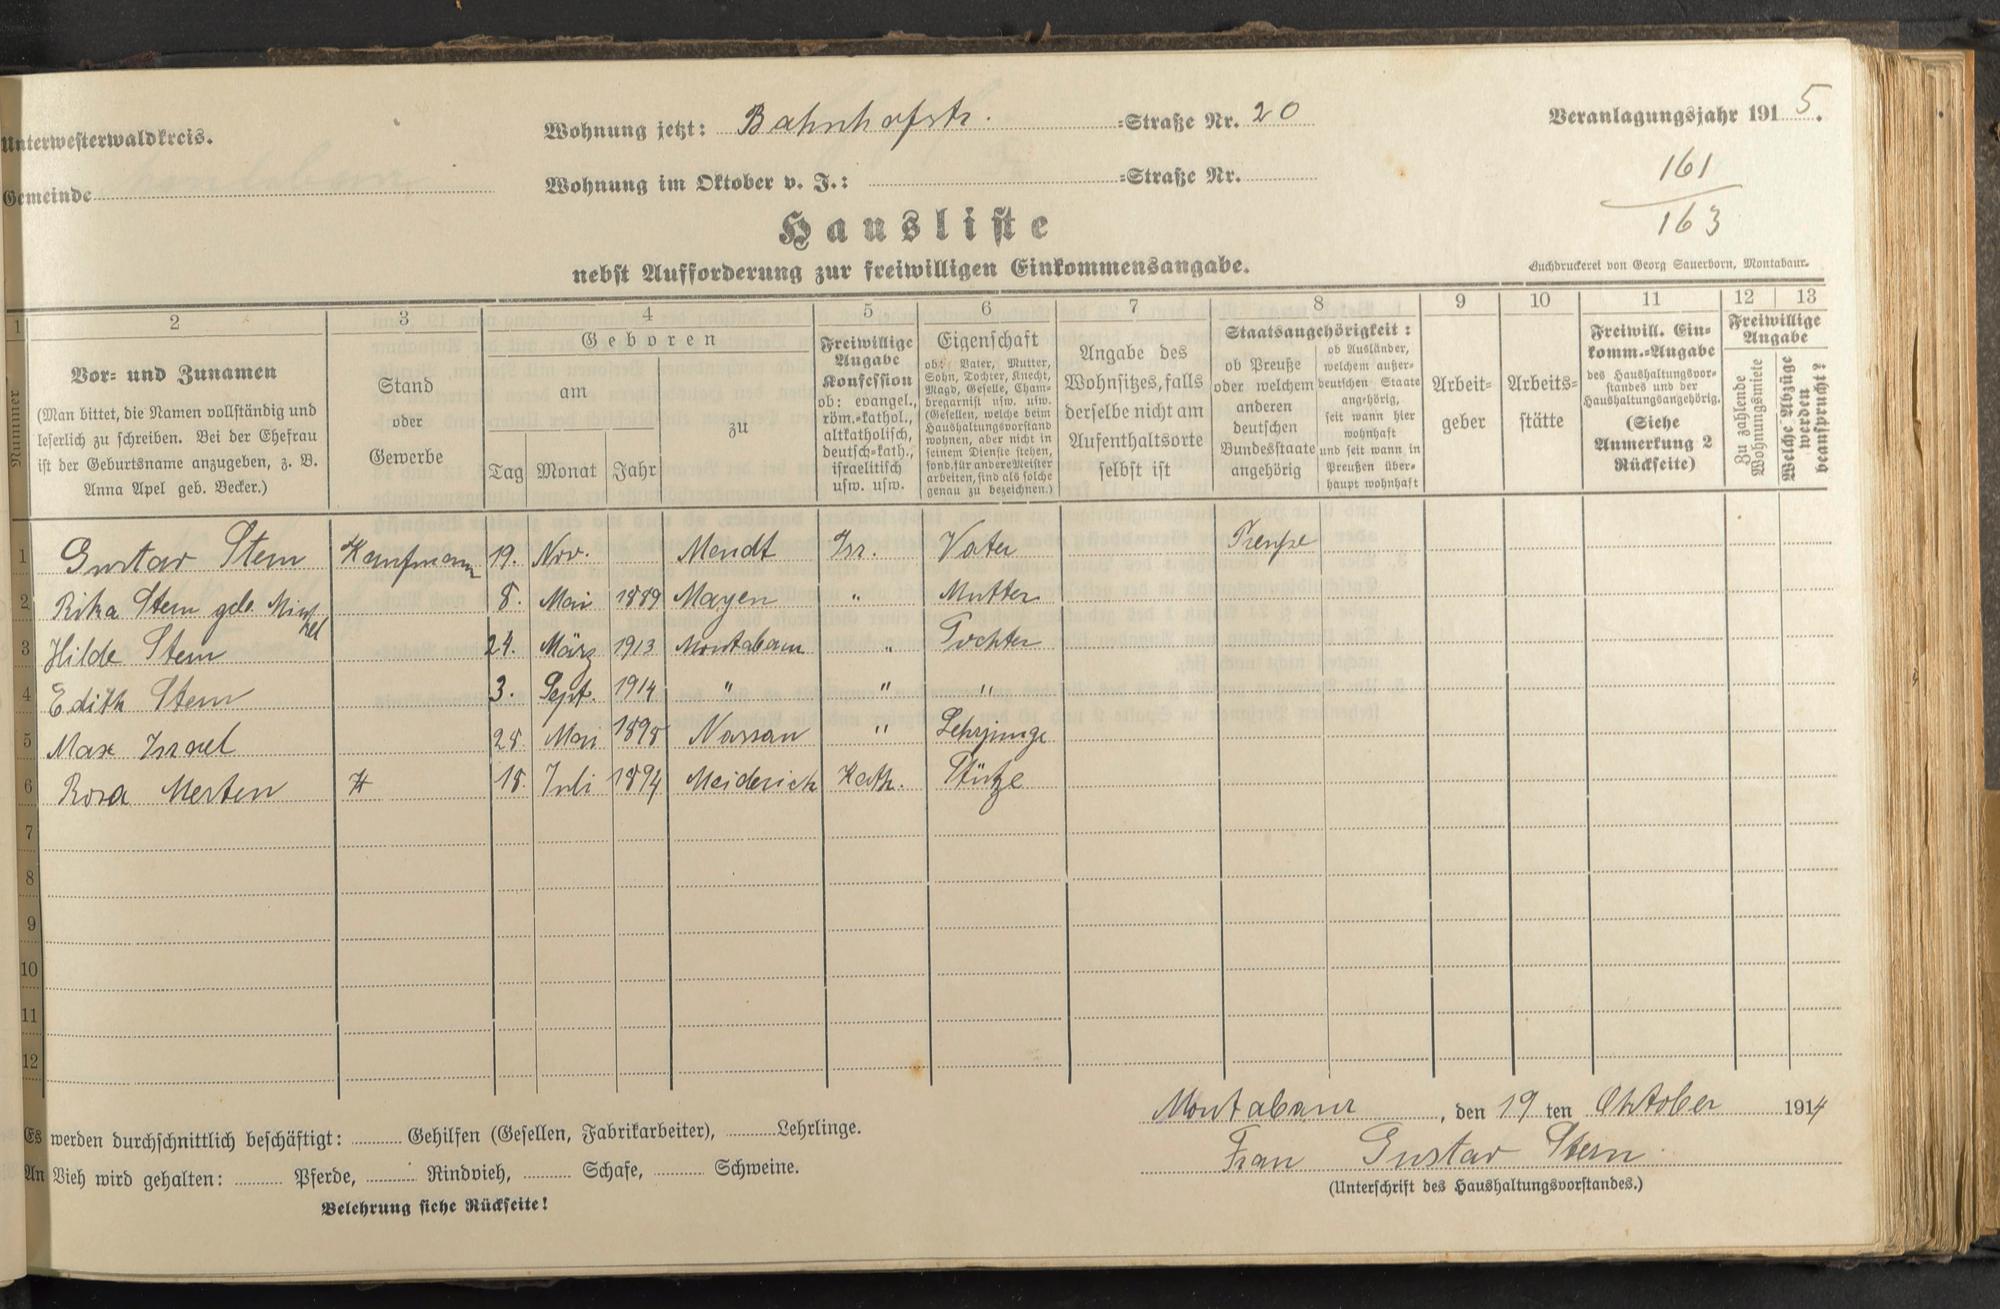 Unterwesterwaldkreis.
Wohnung jetzt: Bahnhofstr. =Straße Nr. 20
Veranlagungsjahr 1915.
Gemeinde
Wohnung im Oktober v. J.: =Straße Nr.
161
163
Hausliste
nebst Aufforderung zur freiwilligen Einkommensangabe.
Buchdruckerei von Georg Sauerborn, Montabaur.
1 2 3 4 5 6 7 8 9 10 11 12 13
Nummer
Vor- und Zunamen
(Man bittet, die Namen vollständig und
leserlich zu schreiben. Bei der Ehefrau
ist der Geburtsname anzugeben, z. B.
Anna Apel geb. Becker.)
Stand
oder
Gewerbe
Geboren
am
Tag Monat Jahr
zu
Freiwillige
Angabe
Konfession
ob: evangel.,
röm.-kathol.,
altkatholisch,
deutsch-kath.,
israelitisch
usw. usw.
Eigenschaft
ob: Vater, Mutter,
Sohn, Tochter, Knecht,
Magd, Geselle, Cham-
bregarnist usw. usw.
(Gesellen, welche beim
Haushaltungsvorstand
wohnen, aber nicht in
seinem Dienste stehen,
sond. für andere Meister
arbeiten, sind als solche
genau zu bezeichnen.)
Angabe des
Wohnsitzes, falls
derselbe nicht am
Aufenthaltsorte
selbst ist
Staatsangehörigkeit:
ob Preuße
oder welchem
anderen
deutschen
Bundesstaate
angehörig
ob Ausländer,
welchem außer-
deutschen Staate
angehörig,
seit wann hier
wohnhaft
und seit wann in
Preußen über-
haupt wohnhaft
Arbeit-
geber
Arbeits-
stätte
Freiwill. Ein-
komm.-Angabe
des Haushaltungsvor-
standes und der
Haushaltungsangehörig.
(Siehe
Anmerkung 2
Rückseite)
Freiwillige
Angabe
Zu zahlende
Wohnungsmiete
Welche Abzüge
werden
beansprucht?
1 Gustav Stern Kaufmann 19. Nov. Mendt Isr. Vater Preuße
2 Rika Stern geb. Minkel 8. Mai 1889 Mayen " Mutter
3 Hilde Stern 24. März 1913 Montabaur " Tochter
4 Edith Stern 3. Sept. 1914 " " "
5 Max Israel 28. Mai 1898 Nassau " Lehrjunge
6 Rosa Merten 18. Juli 1894 Meiderich Kath. Stütze
7
8
9
10
11
12
Montabaur, den 19 ten Oktober 1914
Es werden durchschnittlich beschäftigt: Gehilfen (Gesellen, Fabrikarbeiter), Lehrlinge.
Frau Gustav Stern
An Vieh wird gehalten: Pferde, Rindvieh, Schafe, Schweine.
(Unterschrift des Haushaltungsvorstandes.)
Belehrung siehe Rückseite!